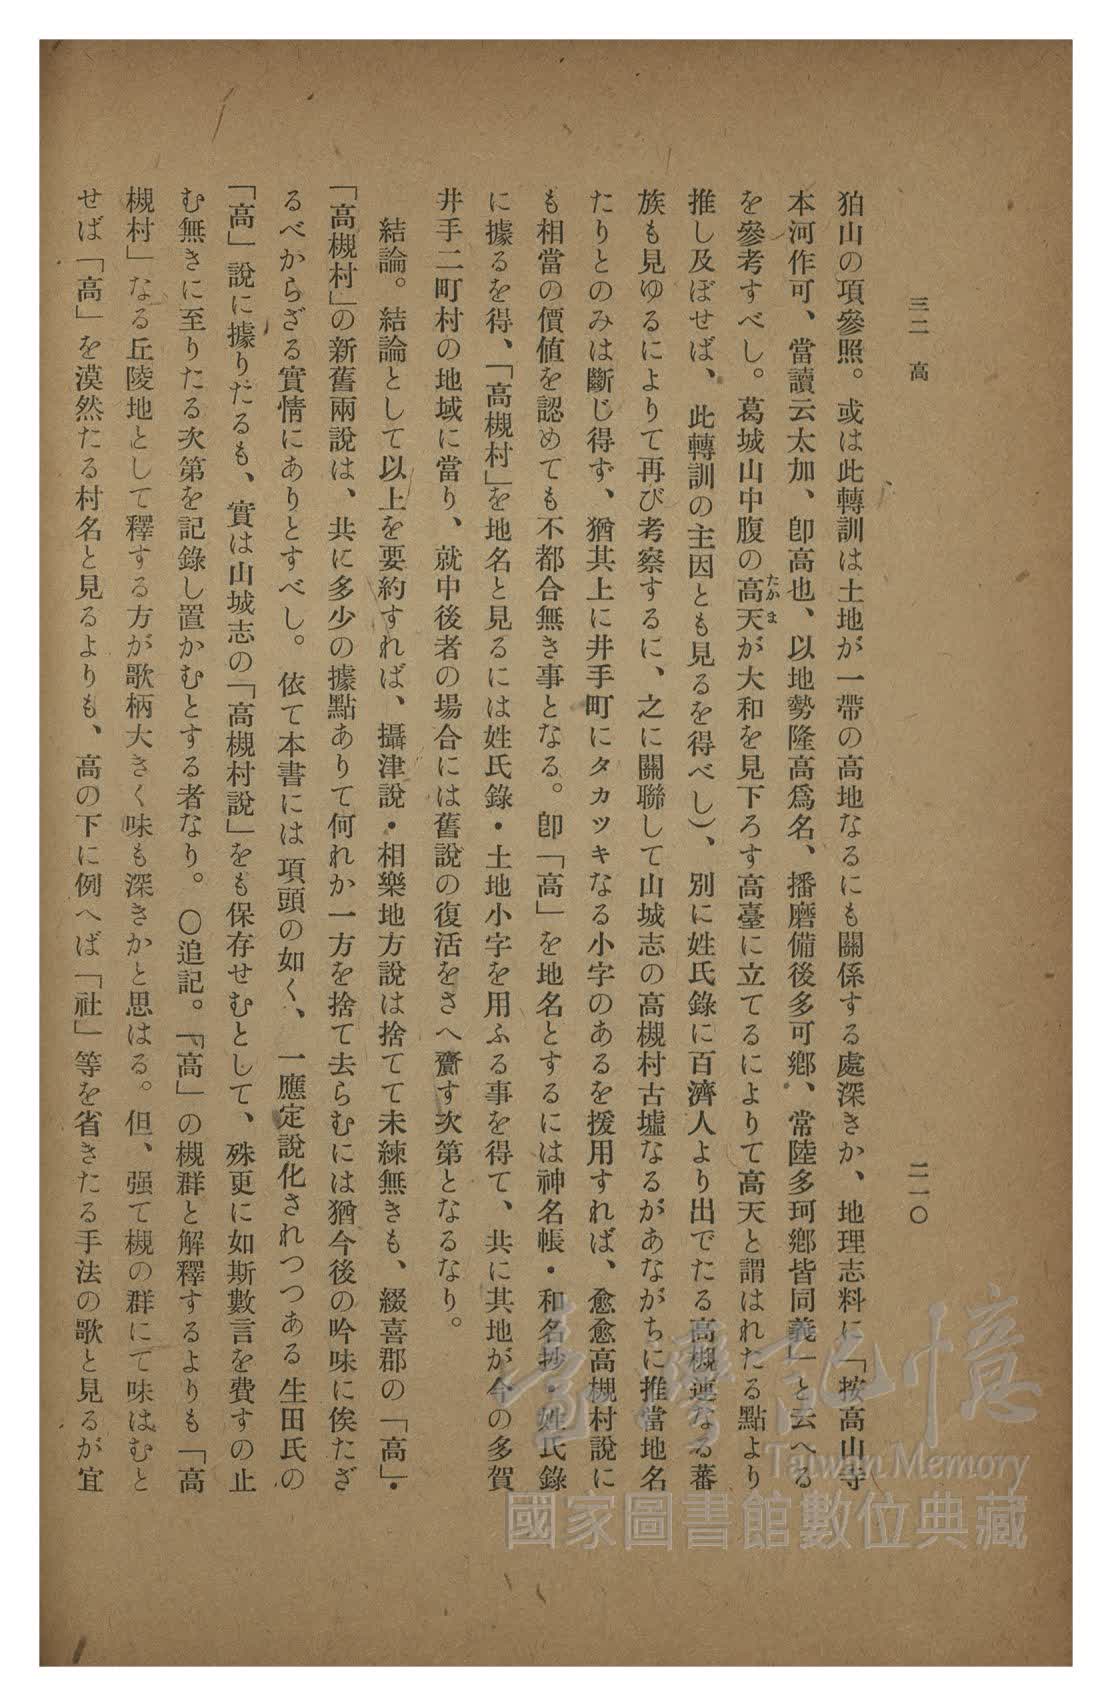 三二　高　二一〇
狛山の項參照。或は此轉訓は土地が一帶の高地なるにも關係する處深きか、地理志料に「按高山寺
本河作可、當讀云太加、卽高也、以地勢隆高爲名、播磨備後多可鄕、常陸多珂鄕皆同義」と云へる
を參考すべし。葛城山中腹の高天が大和を見下ろす高臺に立てるによりて高天と謂はれたる點より
たかま
推し及ぼせば、此轉訓の主因とも見るを得べし)、別に姓氏錄に百濟人より出でたる高槻連なる蕃
族も見ゆるによりて再び考察するに、之に關聯して山城志の高槻村古墟なるがあながちに推當地名
たりとのみは斷じ得ず、猶其上に井手町にタカツキなる小字のあるを援用すれば、愈愈高槻村說に
も相當の價値を認めても不都合無き事となる。卽「高」を地名とするには神名帳・和名抄・姓氏錄
に據るを得、「高槻村」を地名と見るには姓氏錄・土地小字を用ふる事を得て、共に其地が今の多賀
井手二町村の地域に當り、就中後者の場合には舊說の復活をさへ齎す次第となるなり。
結論。結論として以上を要約すれば、攝津說・相樂地方說は捨てて未練無きも、綴喜郡の「高」・
「高槻村」の新舊兩說は、共に多少の據點ありて何れか一方を捨て去らむには猶今後の吟味に俟たざ
るべからざる實情にありとすべし。依て本書には項頭の如く、一應定說化されつつある生田氏の
「高」說に據りたるも、實は山城志の「高槻村說」をも保存せむとして、殊更に如斯數言を費すの止
む無きに至りたる次第を記錄し置かむとする者なり。〇追記。「高」の槻群と解釋するよりも「高
槻村」なる丘陵地として釋する方が歌柄大きく味も深きかと思はる。但、强て槻の群にて味はむと
せば「高」を漠然たる村名と見るよりも、高の下に例へば「社」等を省きたる手法の歌と見るが宜
臺灣記憶
Taiwan Memory
國家圖書館數位典藏